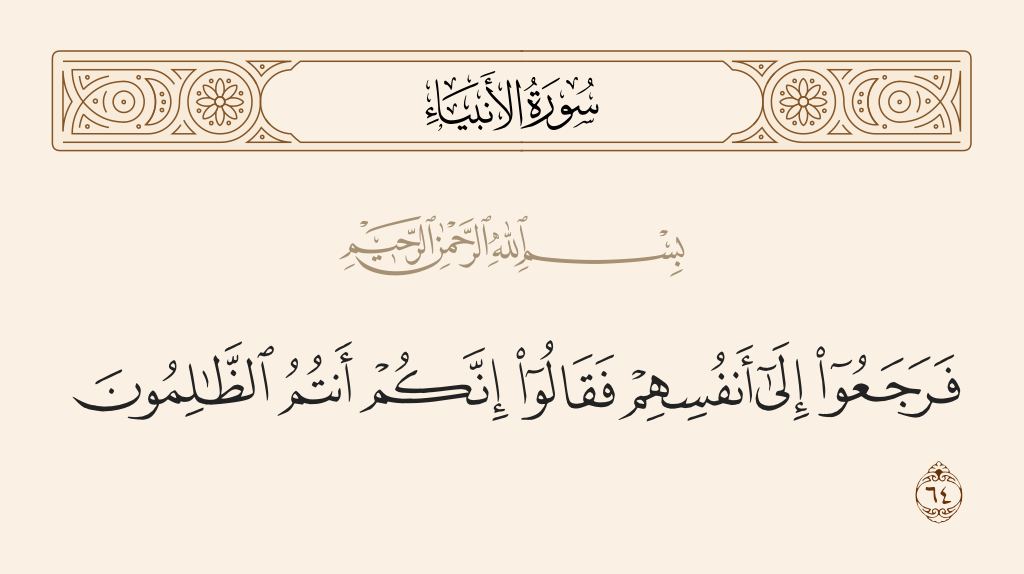 سُورَةُ الأَنبِيَاءِ
بِسْمِ ٱللَّهِ ٱلرَّحْمَٰنِ ٱلرَّحِيمِ
فَرَجَعُوٓا۟ إِلَىٰٓ أَنفُسِهِمْ فَقَالُوٓا۟ إِنَّكُمْ أَنتُمُ ٱلظَّٰلِمُونَ
٦٤